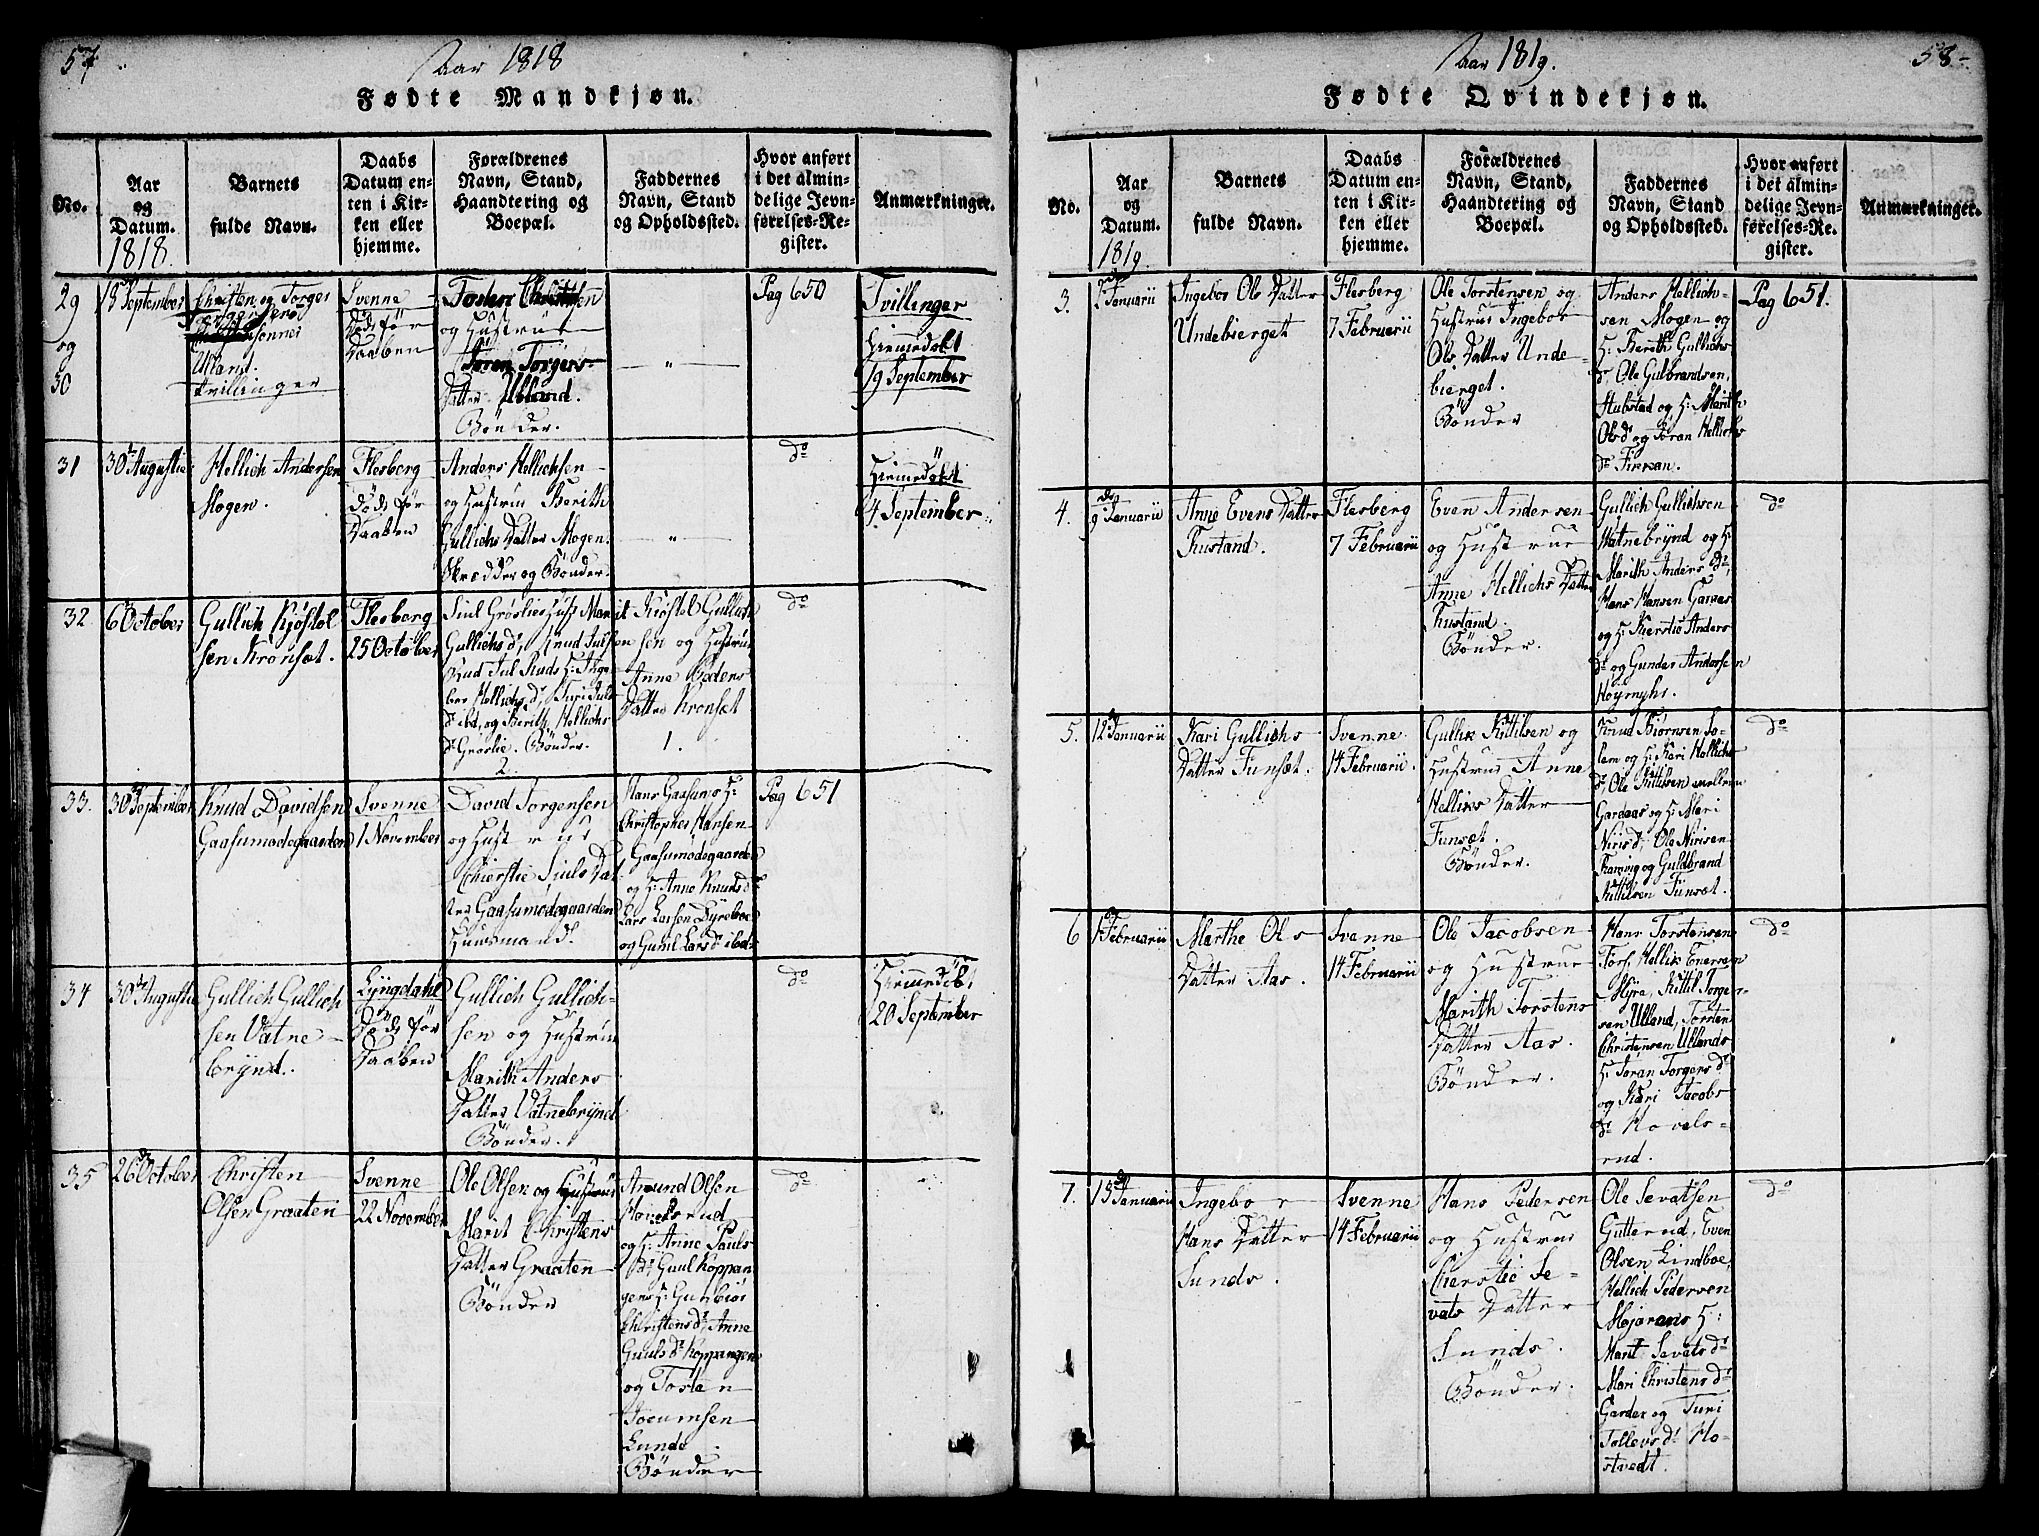 57
Aar 1818
Fødte Mandkjøn.
No.
Aar
og
Datum.
1818.
Barnets
fulde Navn.
Daabs
Datum en-
ten i Kir-
ken eller
hjemme.
Forældrenes
Navn, Stand,
Haandtering og
Boepæl.
Faddernes
Navn, Stand
og Opholdssted.
Hvor anført
i det almin-
delige Jevn-
førelses-Re-
gister.
Anmærkninger.
29
og
30
September
Christen og Torger
Ulland.
tvillinger
Svenne
Død før
Daaben
og Hustrue
Datter Ulland.
Bönder.
"
Pag 650
Tvillinger
Hiemedøbt
19 September
31
30 Augustii
Hellich Andersen
Mogen.
Flesberg
død før
Daaben
Anders Hellichsen
og Hustrue Berith
Gullichs Datter Mogen.
Skrædder og Bönder.
"
do
Hiemedøbt
4 September
32
6 October
Gullich Kjöstol
sen Kronsæt.
Flesberg
25 October
Siul Grøslies Hust Marit
Gullichs dr, Knud Juls
Berith Hellichs
dr Grøslie. Bönder.
2.
Kiöstol Gullich
sen og Hustrue
Anne
Datter Kronsæt
1.
do
33.
30 September
Knud Davidsen
Gaasumødegaarden
Svenne
1 November
David Torgensen
og Hustrue
Chierstie Siuls Dat
ter Gaasumødegaarden
Huusmand.
Hans Gaasum o H:
Christopher Hansen
Gaasumødegaarden
og H: Anne Knuds dr
Lars Larsen Dyreboe
og Gunil Lars dr ibd.
Pag 651
34
30 Augustii
Gullich Gullich
sen Vatne-
brynd.
Lyngdahl
Død før
Daaben
Gullich Gullich-
sen og Hustrue
Marith Anders
Datter Vatnebrynd
Bönder.
do
Hiemedøbt
20 September
35
26 October
Christen
Olsen Graaten
Svenne
22 November
Ole Olsen og Hustrue
Marit Christens
Datter Graaten
Bönder
Amund Olsen
og H: Anne Pauls
dr Guul Koppan
gen o H: Gunbiör
Christens dr, Anne
Guuls dr Koppangen
og Tosten
Jocumsen
Lunde
Bönder
do
58
Aar 1819.
Fødte Qvindekjøn.
No.
Aar
og
Datum.
1819.
Barnets
fulde Navn.
Daabs
Datum en-
ten i Kir-
ken eller
hjemme.
Forældrenes
Navn, Stand,
Haandtering og
Boepæl.
Faddernes
Navn, Stand
og Opholdssted.
Hvor anført
i det almin-
delige Jevn-
førelses-Re-
gister.
Anmærkninger.
3.
Januarii
Ingebor Ols Datter
Undebierget
Flesberg
7 Februarii
Ole Torstensen og
Hustrue Ingebor
Ols Datter Unde-
bierget.
Bönder
Anders Hellich-
sen Mogen og
H: Berith Gullichs
dr, Ole Gulbrandsen,
Hubstad og H: Marith
Ols dr og Jöran Hellichs
dr Fikkan.
Pag 651.
4.
9 Januarii
Anne Evens Datter
Tustand.
Flesberg
7 Februarii
Even Andersen
og Hustrue
Anne Hellichs Datter
Tustand.
Bönder.
Gullich Gullichsen
Vatnebrynd og H:
Marith Anders dr,
Hans Hansen
og H: Kierstie Anders
dr og Gunder Andersen
Höymyhr.
do
5.
12 Januarii
Kari Gullichs
Datter Funsæt.
Svenne
14 Februarii.
Gullik Kittilsen og
Hustrue Anne
Helliks Datter
Funsæt.
Bönder.
Knud Biörnsen So-
lem og H: Kari Hellichs
dr, Ole Kittilsen mellem
Gardaas og H: Mari
Niris dr, Ole Nirisen
og Guldbrand
Kittilsen Funsæt.
do
6
1 Februarii
Marthe Ols
Datter Aas.
Svenne
14 Februarii
Ole Jacobsen
og Hustrue
Marith Torstens
Datter Aas.
Bönder.
Hans Torstensen
Hellik Enersen
Myre, Kittil Torger-
sen Ulland, Torsten
Christensen Ullands
H: Jöran Torgers dr
og Kari Jacobs
dr Hovels-
rud.
do
7.
15 Januarii
Ingebor
Hans Datter
Lunds.
Svenne
14 Februarii
Hans Pedersen
og Hustrue
Cierstie Se-
vats Datter
Lunds.
Bönder.
Ole Sevatsen
Gutterud, Even
Olsen Lindboe,
Hellich Pedersen
H:
Marit Sevats dr
Mari Christens dr
Garder og Turi
Tollevs dr Ho-
stvedt.
do